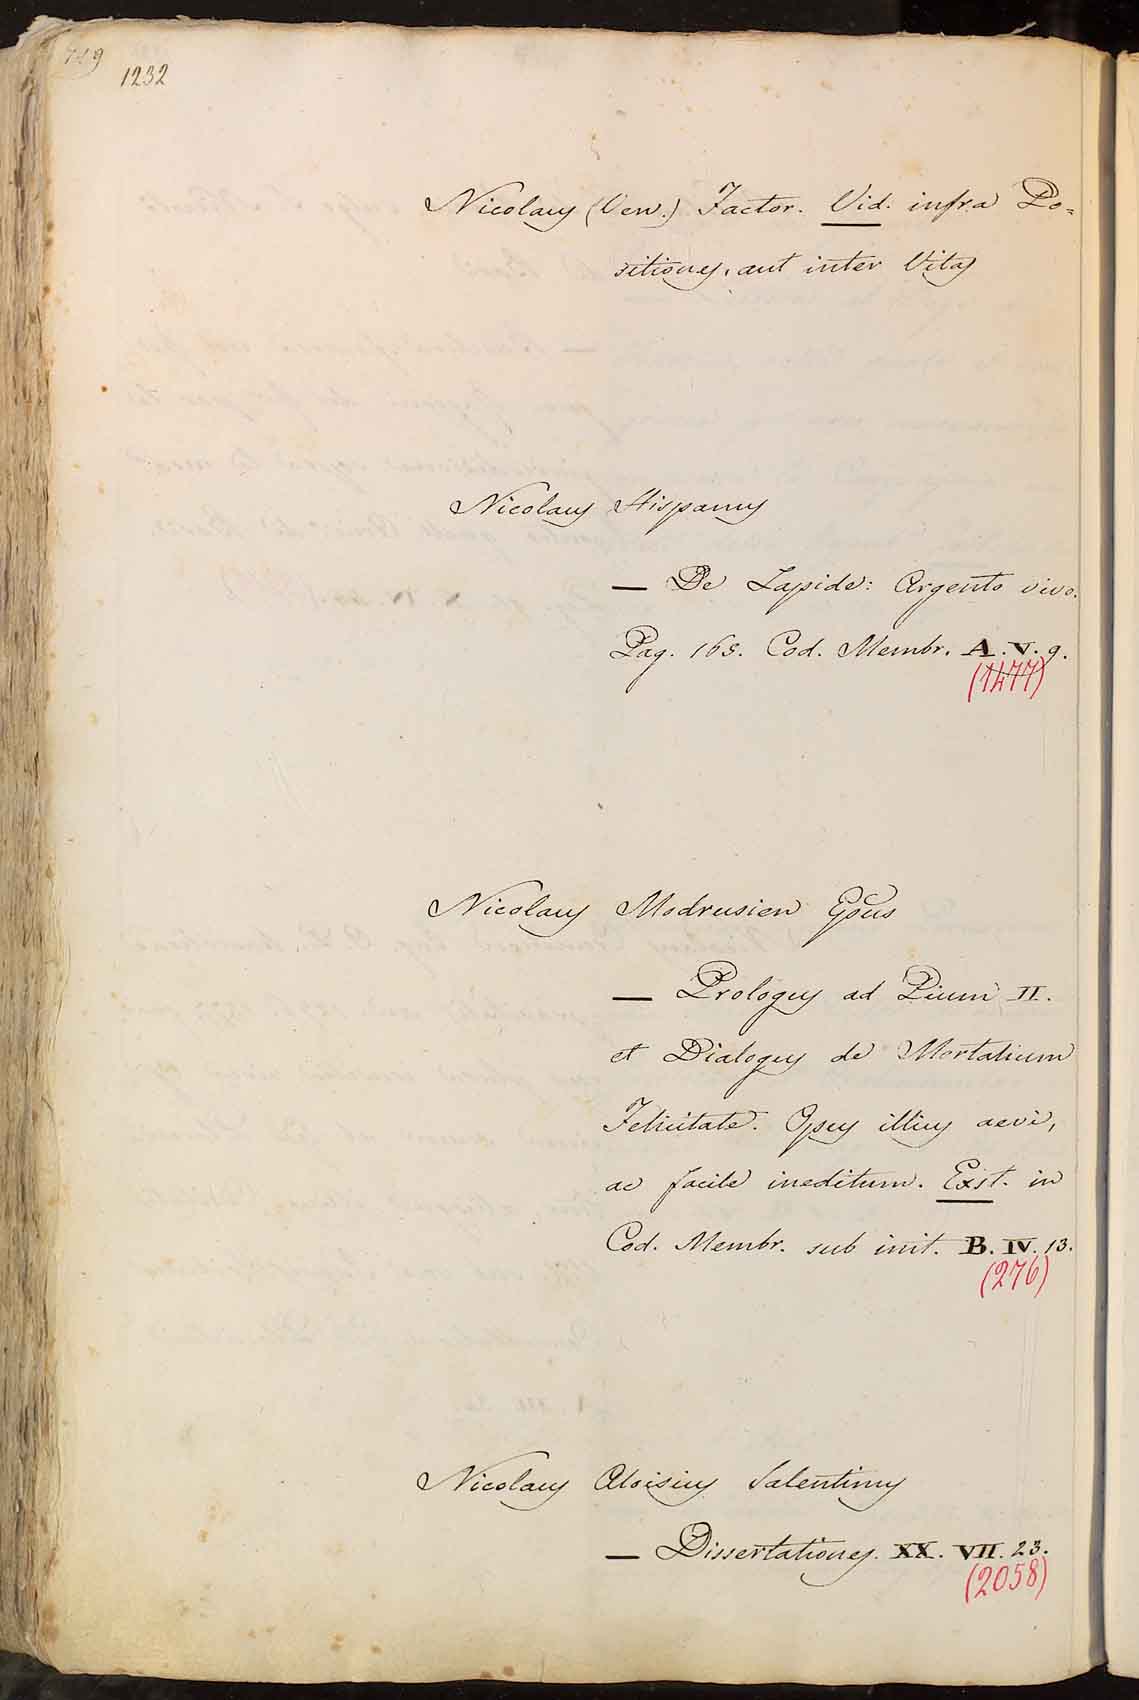 749
1232
Nicolaus (Ven.) Factor. Vid. infra Po=
sitiones, aut inter Vitas
Nicolaus Hispanus
— De Lapide: Argento vivo.
Pag. 163. Cod. Membr. A. V. 9.
(1477)
Nicolaus Modrusien Epus
— Prologus ad Pium II.
et Dialogus de Mortalium
Felicitate. Opus illius aevi,
ac facile ineditum. Exst. in
Cod. Membr. sub init. B. IV. 13.
(276)
Nicolaus Aloisius Salentinus
— Dissertationes. XX. VII. 23.
(2058)